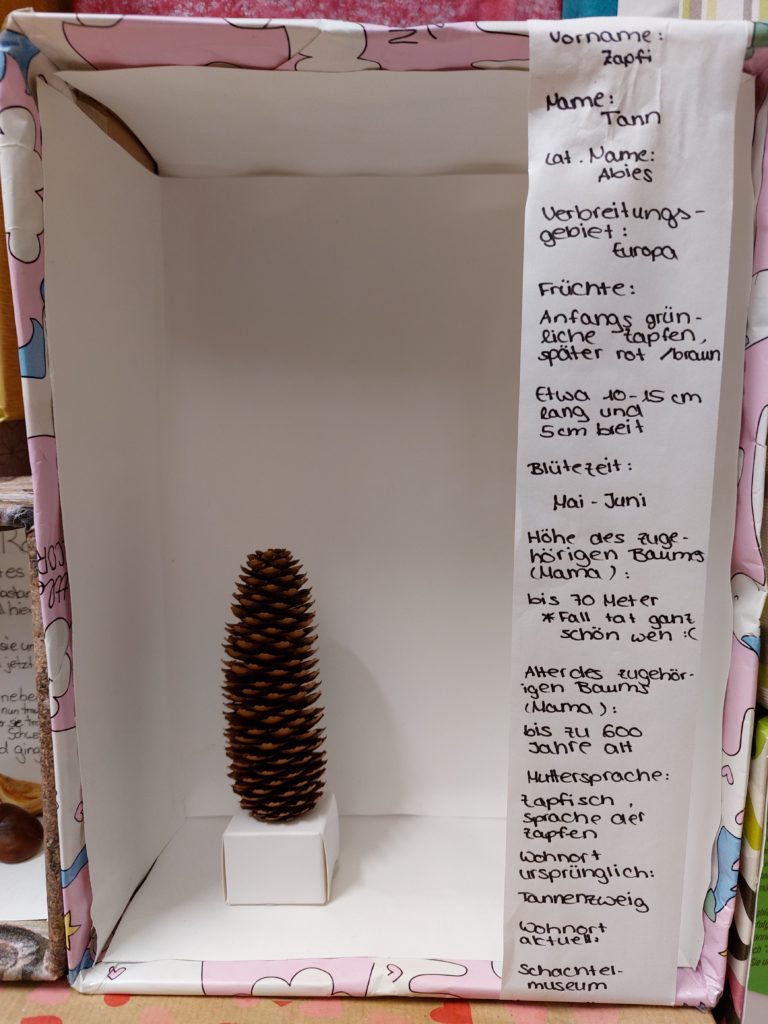 Vorname:
Zapfi
Name:
Tann
Lat. Name:
Abies
Verbreitungs-
gebiet:
Europa
Früchte:
Anfangs grün-
liche Zapfen,
später rot /braun
Etwa 10-15 cm
lang und
5cm breit
Blütezeit:
Mai - Juni
Höhe des zuge-
hörigen Baums
(Mama):
bis 70 Meter
*Fall tat ganz
schön weh :(
Alter des zugehör-
igen Baums
(Mama):
bis zu 600
Jahre alt
Muttersprache:
Zapfisch,
Sprache der
Zapfen
Wohnort
ursprünglich:
Tannenzweig
Wohnort
aktuell:
Schachtel-
museum